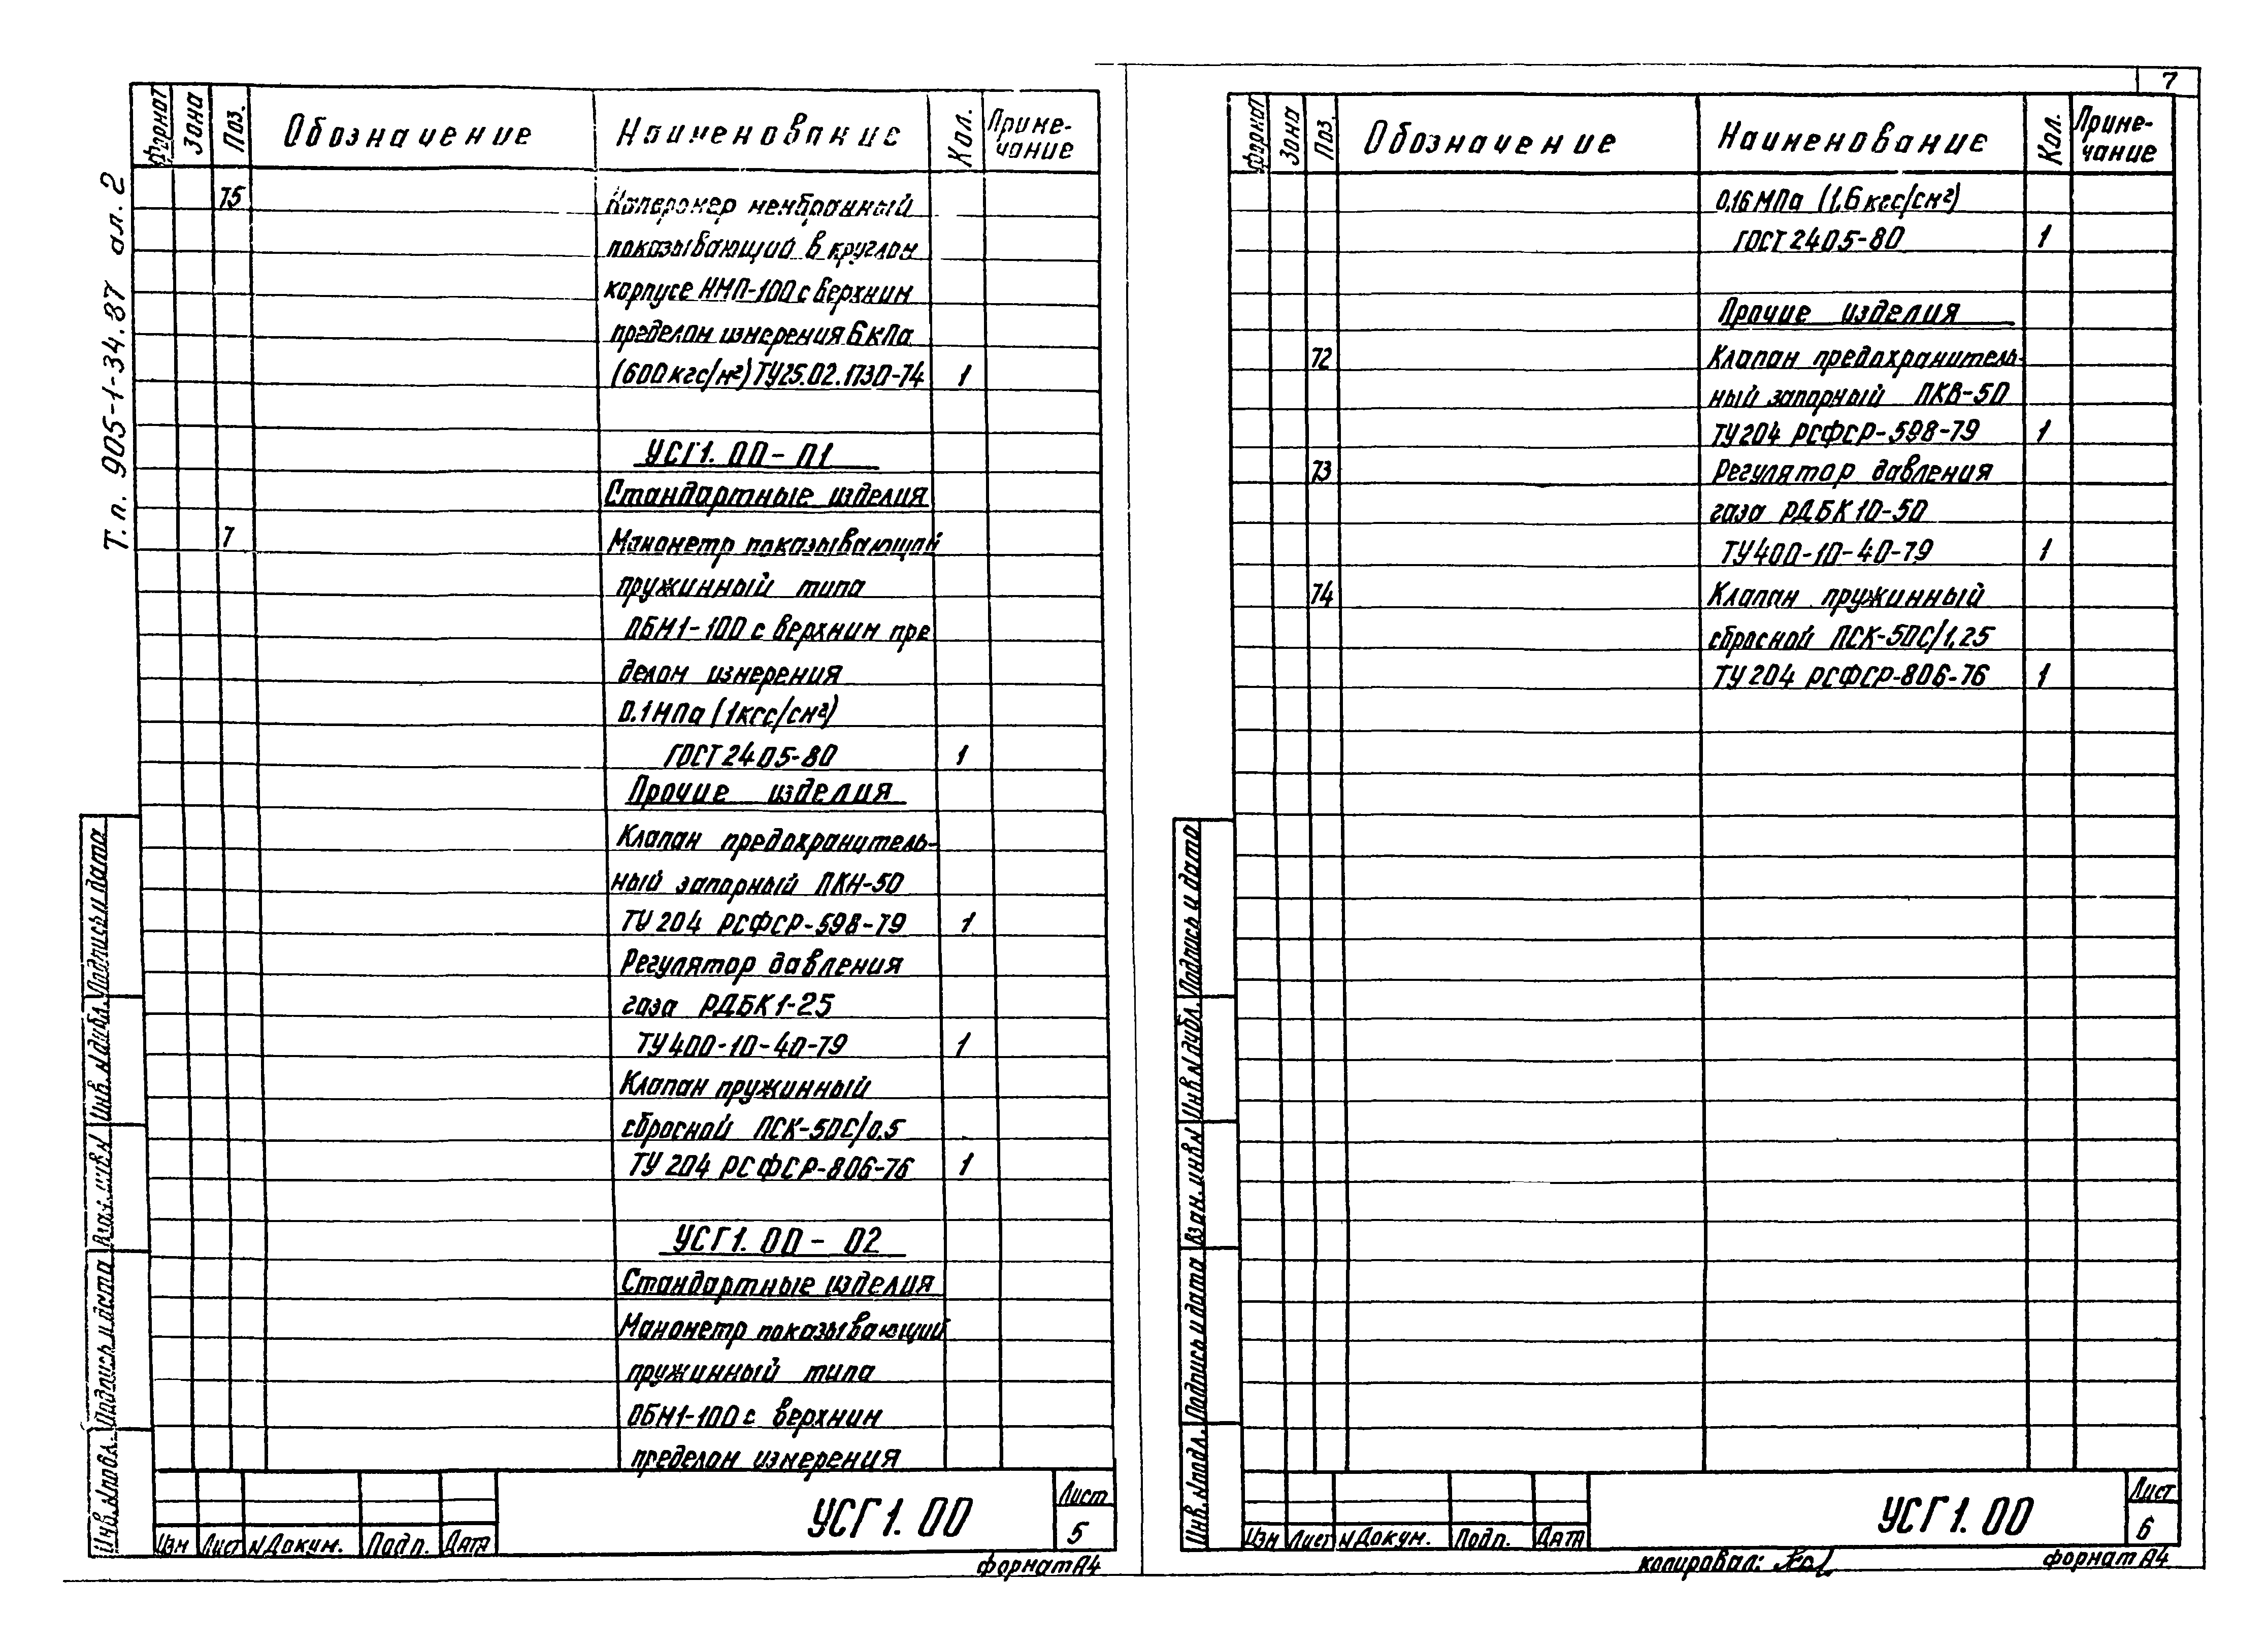 7
Т.п. 905-1-34.87 ал. 2
Формат Зона Поз. Обозначение Наименование Кол. Приме-
чание
75 Напоромер мембранный
показывающий в круглом
корпусе НМП-100 с верхним
пределом измерения 6 кПа
(600 кгс/м²) ТУ25.02.1730-74 1
УСГ1.00-01
Стандартные изделия
7 Манометр показывающий
пружинный типа
ОБМ1-100 с верхним пре
делом измерения
0.1 МПа (1кгс/см²)
ГОСТ 2405-80 1
Прочие изделия
Клапан предохранитель-
ный запорный ПКН-50
ТУ 204 РСФСР-598-79 1
Регулятор давления
газа РДБК1-25
ТУ400-10-40-79 1
Клапан пружинный
сбросной ПСК-50С/0,5
ТУ 204 РСФСР-806-76 1
УСГ1.00-02
Стандартные изделия
Манометр показывающий
пружинный типа
ОБМ1-100 с верхним
пределом измерения
Подпись и дата
Инв. № дубл.
Взам. инв №
Подпись и дата
Инв. № подл.
Изм Лист № Докум. Подп. Дата
УСГ1.00
Лист
5
Формат А4
Формат Зона Поз. Обозначение Наименование Кол. Приме-
чание
0,16 МПа (1,6 кгс/см²)
ГОСТ 2405-80 1
Прочие изделия
72 Клапан предохранитель-
ный запорный ПКВ-50
ТУ 204 РСФСР-598-79 1
73 Регулятор давления
газа РДБК 10-50
ТУ400-10-40-79 1
74 Клапан пружинный
сбросной ПСК-50С/1,25
ТУ 204 РСФСР-806-76 1
Подпись и дата
Инв № дубл.
Взам. инв №
Подпись и дата
Инв. № подл.
Изм Лист № Докум. Подп. Дата
УСГ1.00
Лист
6
копировал:
Формат А4